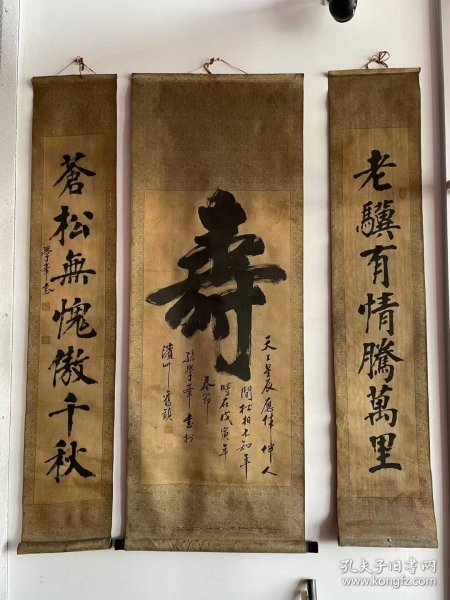 老驥有情騰萬里
壽
天上星辰應作伴人
間松柏不知年
時在戊寅年
春節
孫學峯書於
濱州
蒼松無愧傲千秋
學峯書
孔夫子旧书网
www.kongfz.com